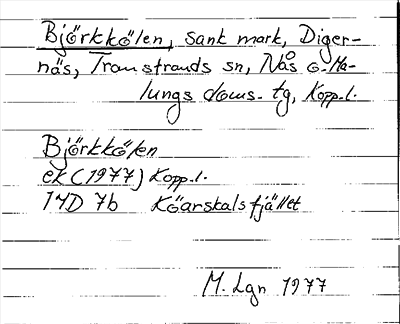 Björkkölen, sank mark, Diger-
näs, Transtrands sn, Nås o. Ma-
lungs doms. tg, Kopp.l.
Björkkölen
ek (1977) Kopp.l.
14D 7b Köarskalsfjället
M. Lgn 1977